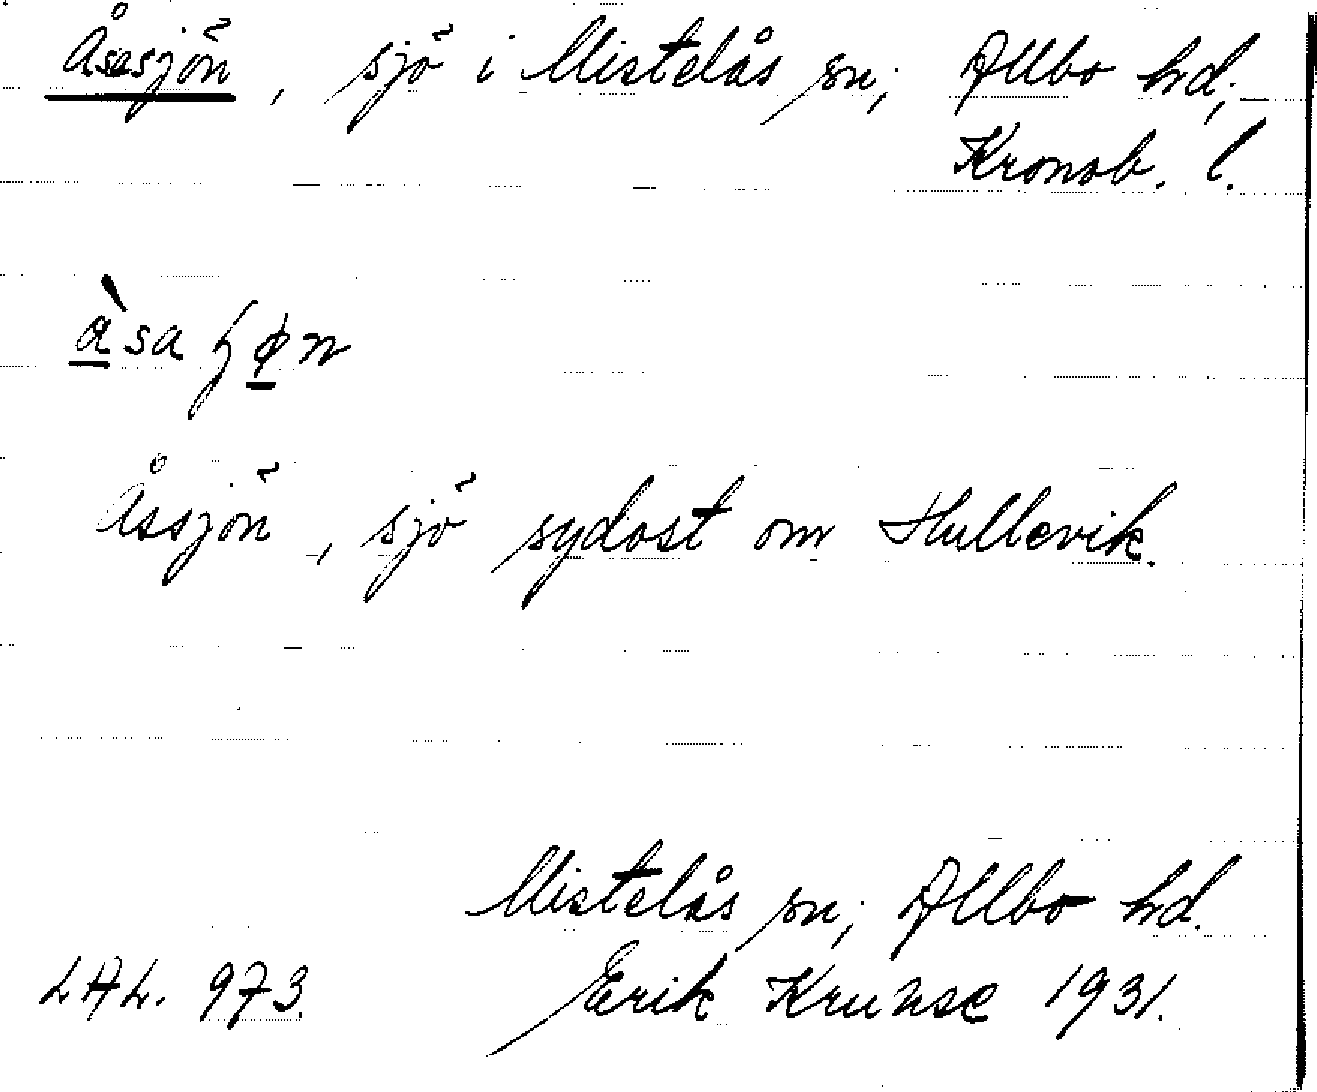 Åsasjön, sjö i Mistelås sn; Allbo hd;
Kronob. l.
Åssjön, sjö sydost om Hullevik.
Mistelås sn; Allbo hd.
LAL. 973. Erik Krunse 1931.